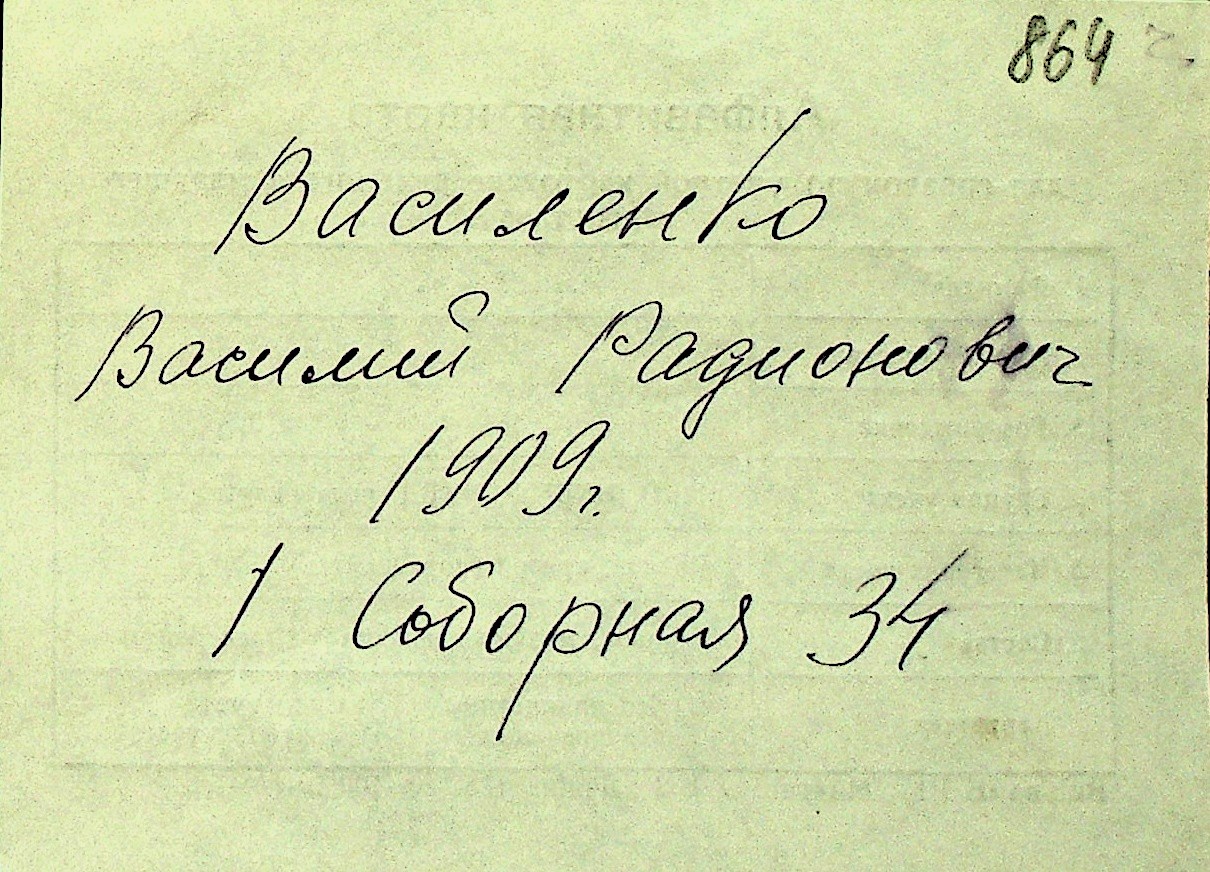 864
Василенко
Василий Радионович
1909г.
1 Соборная 34